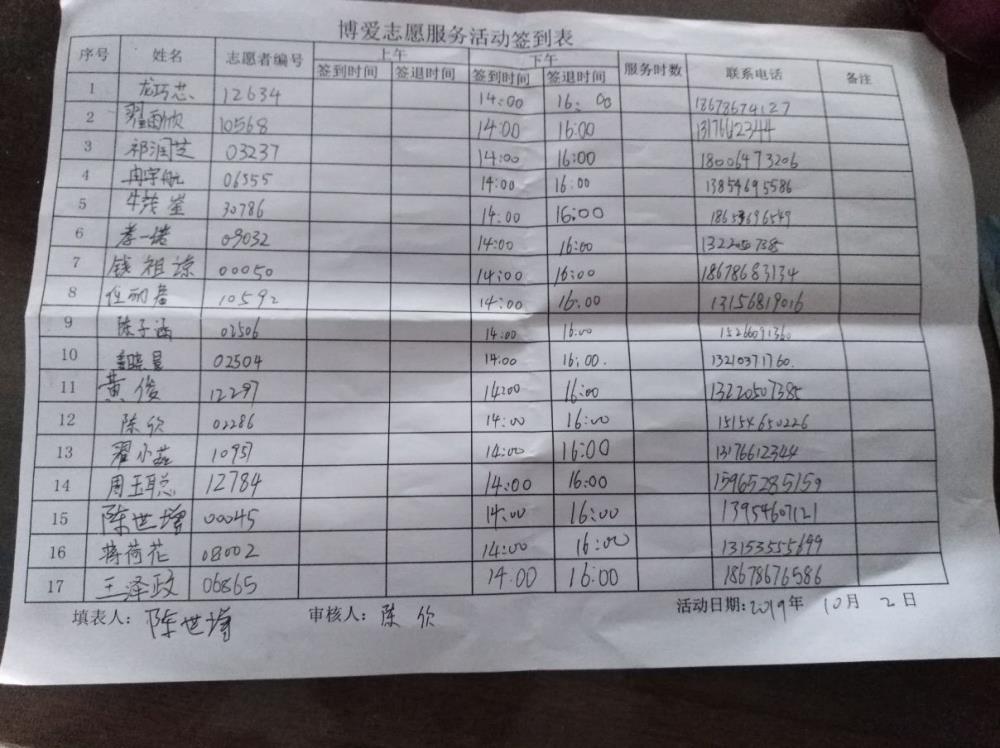 博爱志愿服务活动签到表
序号 姓名 志愿者编号 上午 下午 服务时数 联系电话 备注
签到时间 签退时间 签到时间 签退时间
1 龙巧芯 12634 14:00 16:00 18678674127
2 翟雨欣 10568 14:00 16:00 1317662344
3 祁润芝 03237 14:00 16:00 18006473206
4 冉宇航 06555 14:00 16:00 13854695586
5 牛茂崖 30786 14:00 16:00 18653696549
6 李一诺 09032 14:00 16:00
7 钱祖谅 00050 14:00 16:00 18678683134
8 10592 14:00 16:00 13156819016
9 陈子涵 02506 14:00 16:00 1526091360
10 02504 14:00 16:00. 13210371760.
11 黄俊 12297 14:00 16:00 13220507385
12 陈欣 02286 14:00 16:00 15154650226
13 翟小燕 10957 14:00 16:00 1317612344
14 周玉聪 12784 14:00 16:00 15965285159
15 陈世增 00045 14:00 16:00 13954607121
16 蒋荷花 08002 14:00 16:00 13153555699
17 王泽政 06865 14:00 16:00 18678676586
填表人: 陈世增 审核人: 陈欣 活动日期: 2019年 10月 2日